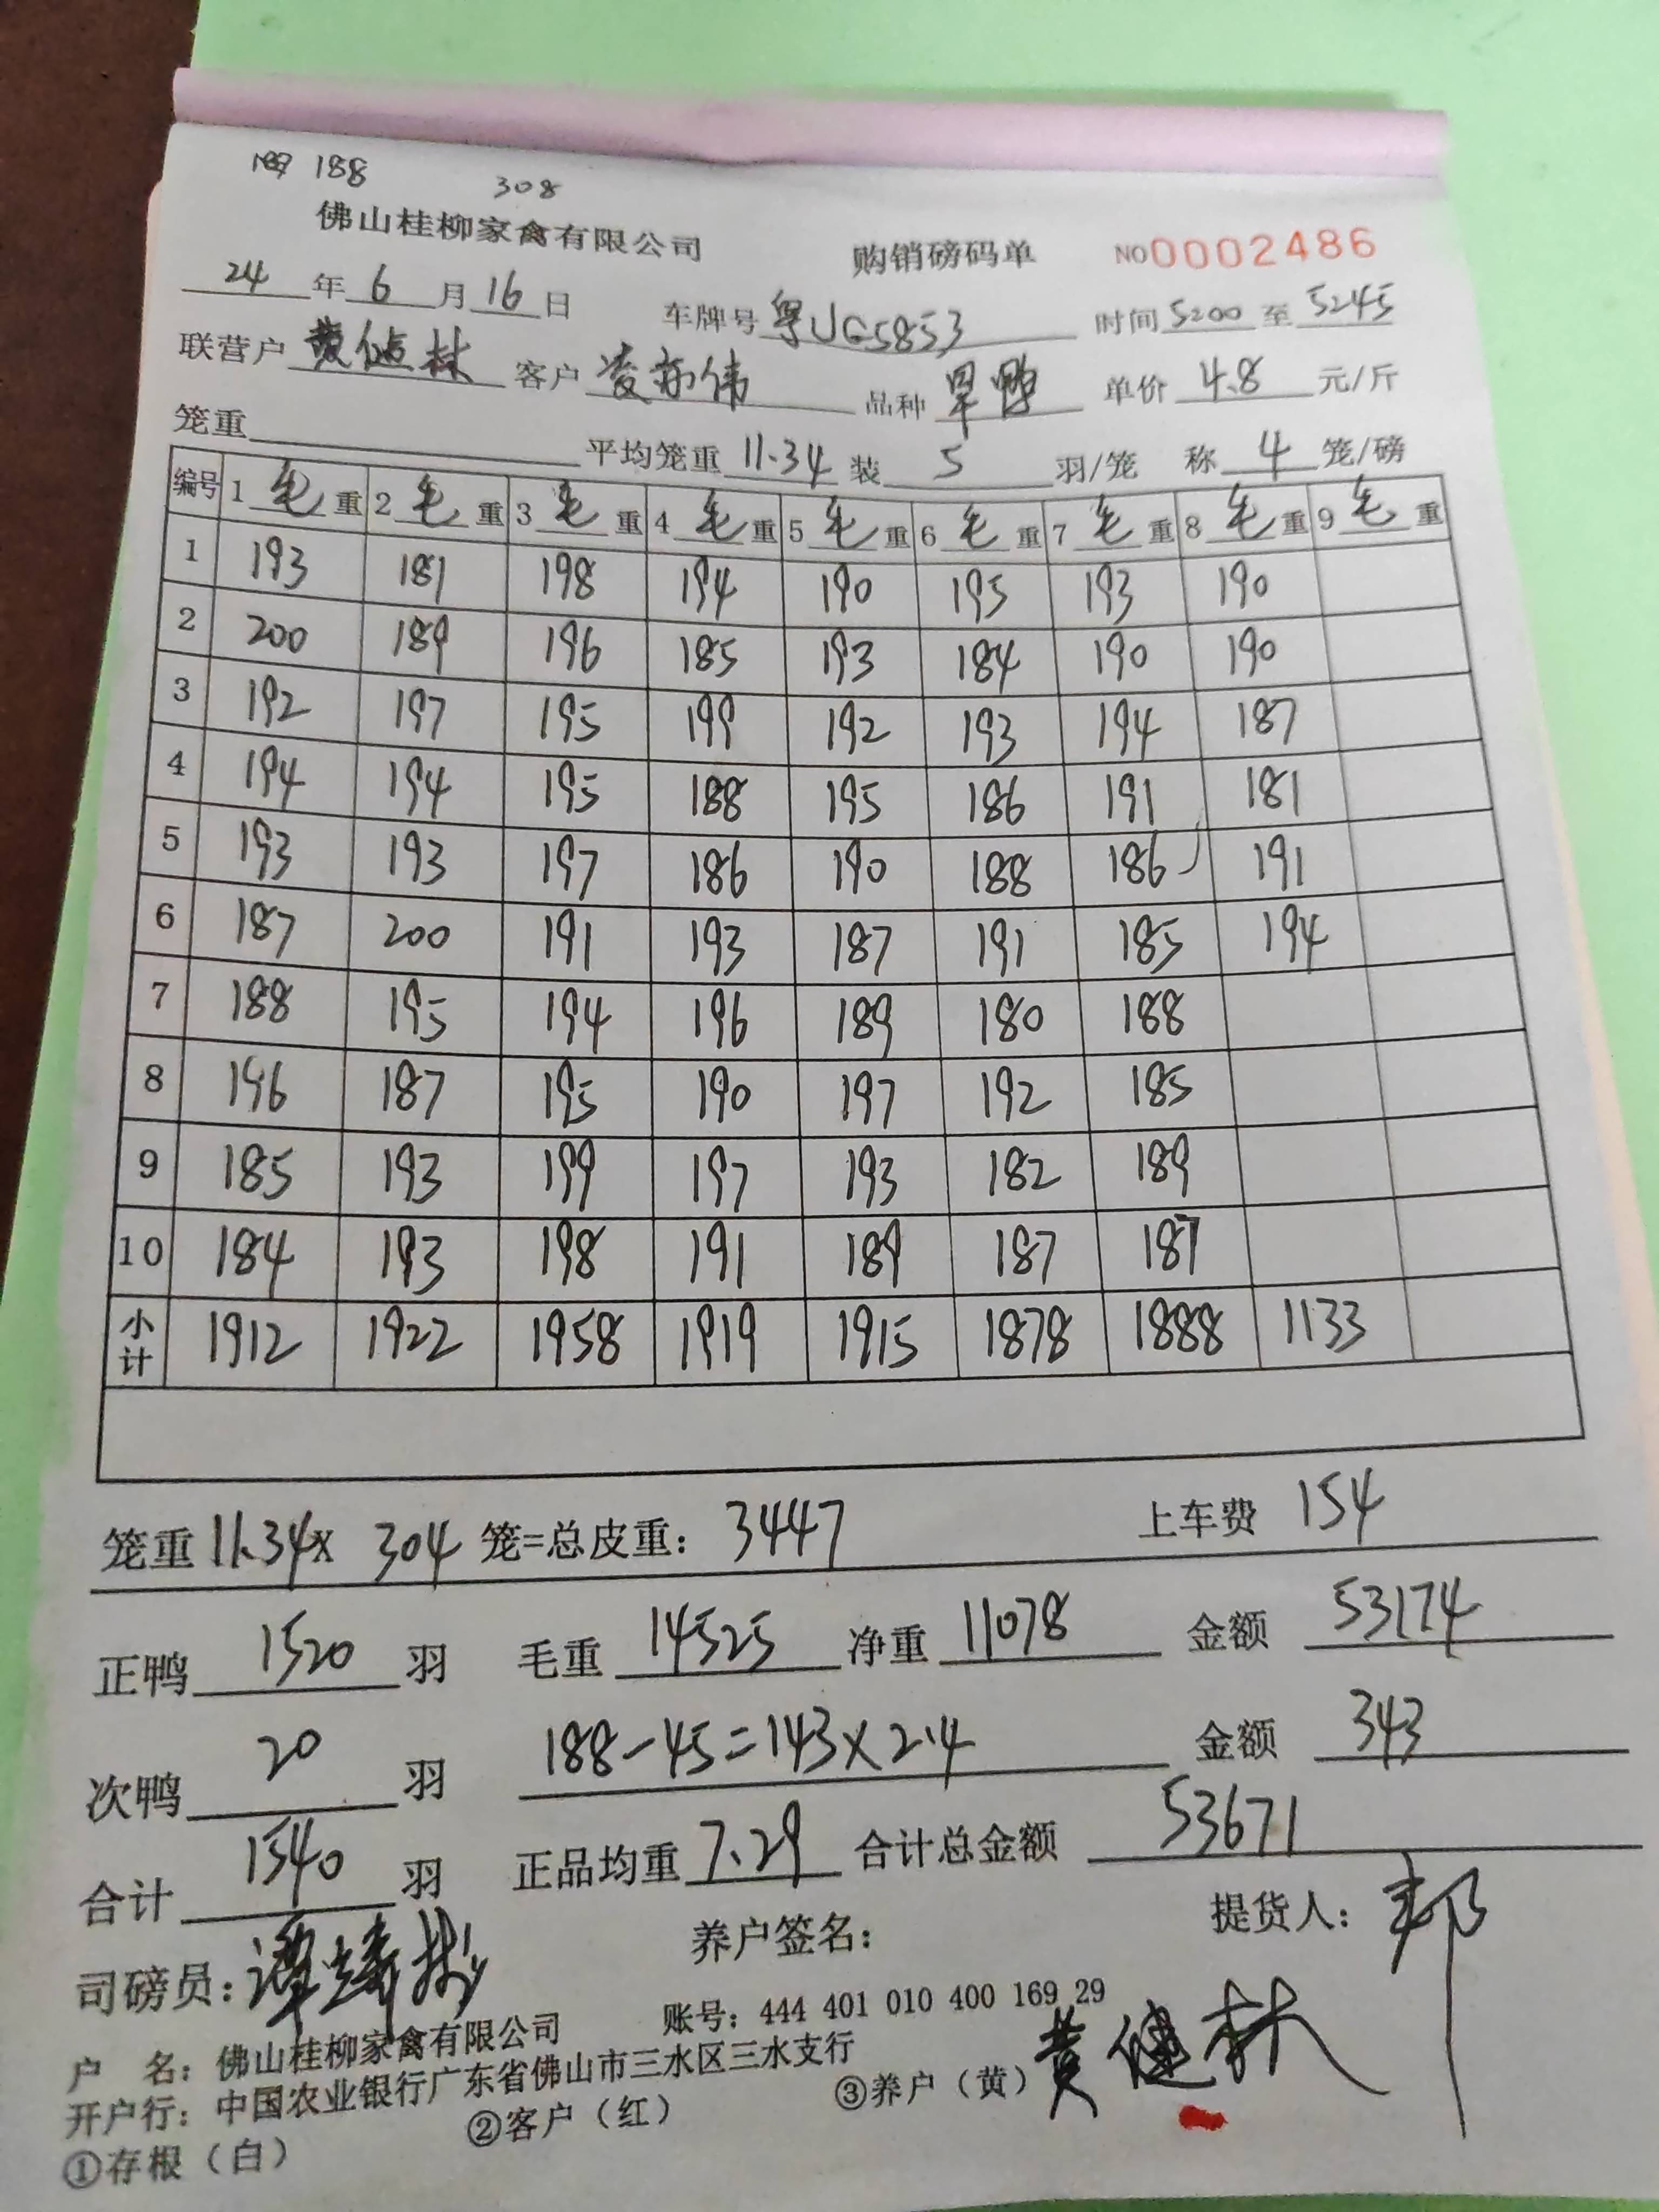 188 308
佛山桂柳家禽有限公司 购销磅码单 NO0002486
24年6月16日 车牌号粤UG5853 时间5200至5245
联营户黄健林 客户凌亦伟 品种旱鸭 单价4.8元/斤
笼重 平均笼重11.34装5羽/笼 称4笼/磅
编号 1毛重 2毛重 3毛重 4毛重 5毛重 6毛重 7毛重 8毛重 9毛重
1 193 181 198 194 190 195 193 190
2 200 189 196 185 193 184 190 190
3 192 197 195 199 192 193 194 187
4 194 194 195 188 195 186 191 181
5 193 193 197 186 190 188 186 191
6 187 200 191 193 187 191 185 194
7 188 195 194 196 189 180 188
8 196 187 195 190 197 192 185
9 185 193 199 197 193 182 189
10 184 193 198 191 189 187 187
小计 1912 1922 1958 1919 1915 1878 1888 1133
笼重11.34× 304笼=总皮重：3447 上车费154
正鸭1520羽 毛重14525净重11078 金额53174
次鸭20羽 188-45=143×2.4 金额343
合计1540羽 正品均重7.29 合计总金额53671
司磅员： 养户签名： 提货人：邦
户 名：佛山桂柳家禽有限公司 账号：444 401 010 400 169 29
开户行：中国农业银行广东省佛山市三水区三水支行 黄健林
①存根（白） ②客户（红） ③养户（黄）